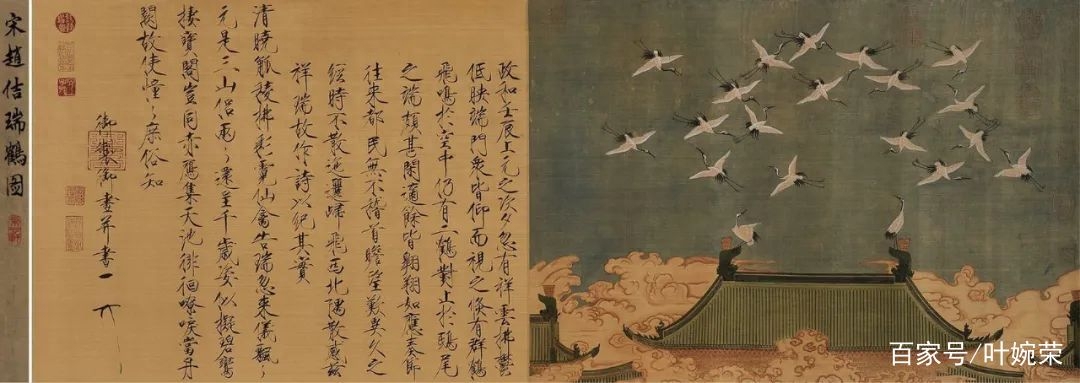 政和壬辰上元之次夕忽有祥雲拂鬱
低映端門眾皆仰而視之倏有群鶴
飛鳴於空中仍有二鶴對止於鴟尾
之端頗甚閑適餘皆翱翔如應奏節
往來都民無不稽首瞻望歎異久之
經時不散迤邐歸飛西北隅散感茲
祥瑞故作詩以紀其實
清曉觚稜拂彩霓仙禽告瑞忽來儀飄〻
元是三山侶兩〻還呈千歲姿似擬碧鸞
棲寶閣豈同赤雁集天池徘徊嘹唳當丹
闕故使憧〻庶俗知
御製御畫并書
宋趙佶瑞鶴圖
百家号/叶婉荣